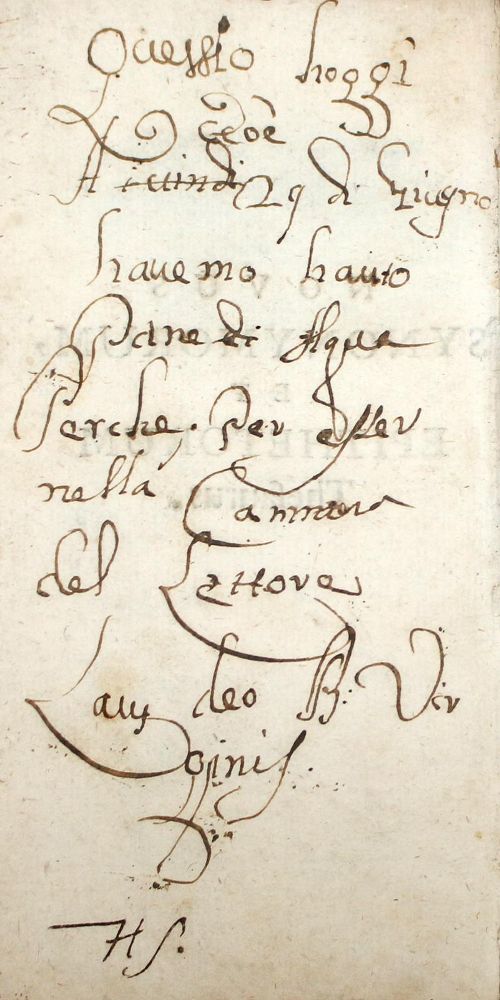 Questo hoggi
cioè
A 29 di Giugno
havemo hauto
Pane et Aqua
Perche, Per esser
nella Cammera
del Lettore
Laus deo B: Vir
ginis.
HS.